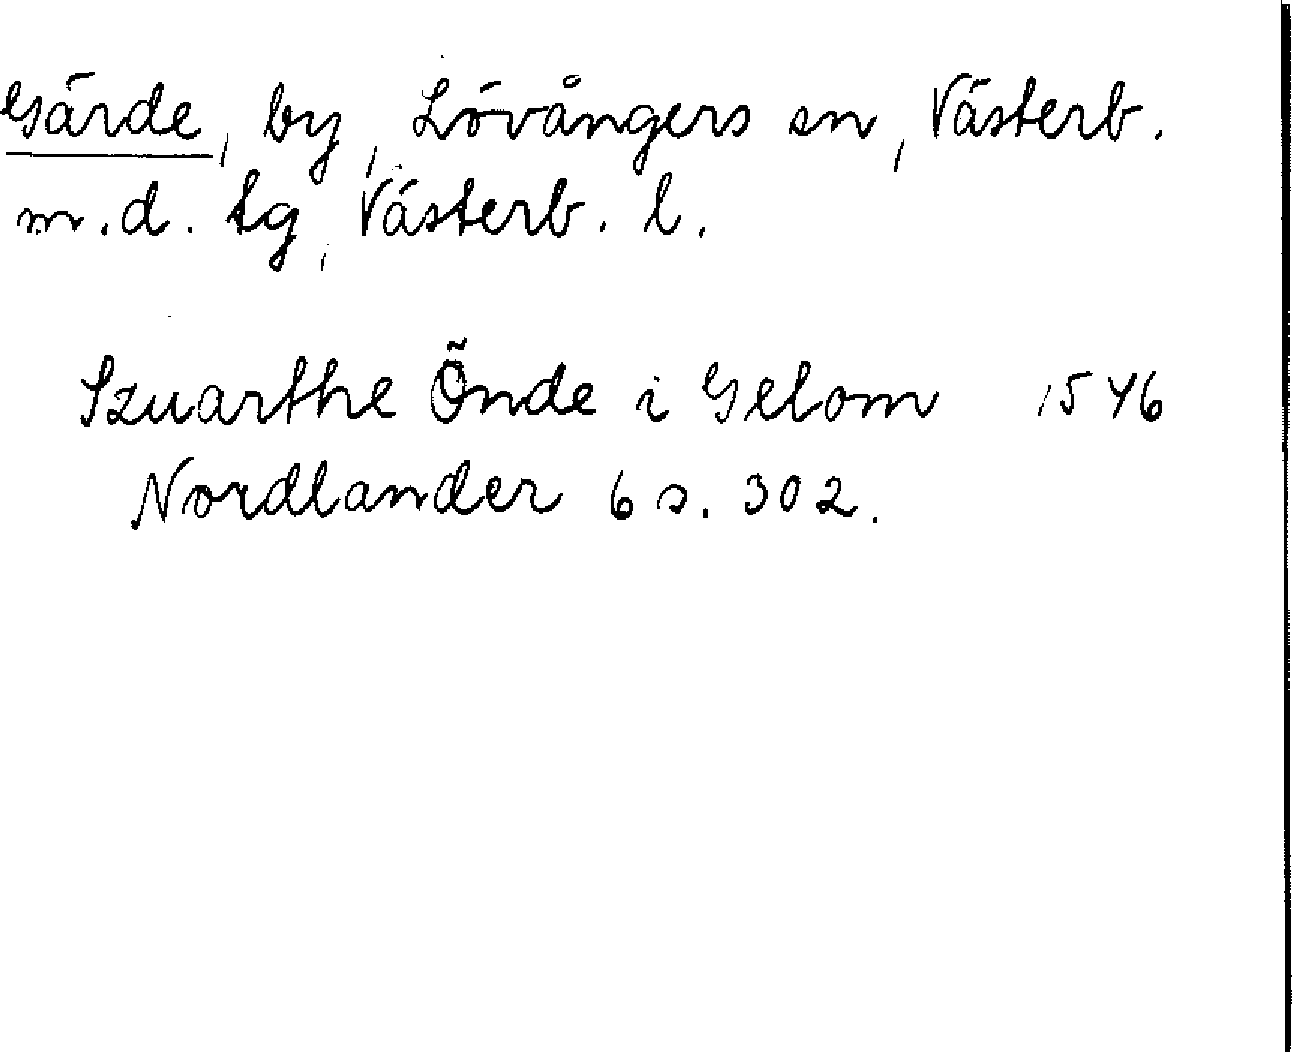 Gärde, by, Lövångers sn, Västerb.
m.d. tg, Västerb. l.
Szuarthe Õnde i Gelom 1546
Nordlander 6 s. 302.